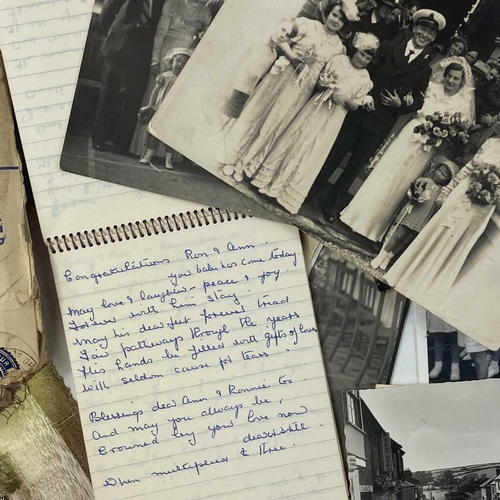 Congratulations Ron & Ann.
your babe has come today
May love & laughter - peace & joy.
Forever with him stay.
May his dear feet forever tread
Fair pathways through the years
His hands be filled with gifts of love
Will seldom cause for tears.
Blessings dear Ann & Ronnie too.
And may you always be,
Crowned by your love now
dearest still.
When multiplied & three.